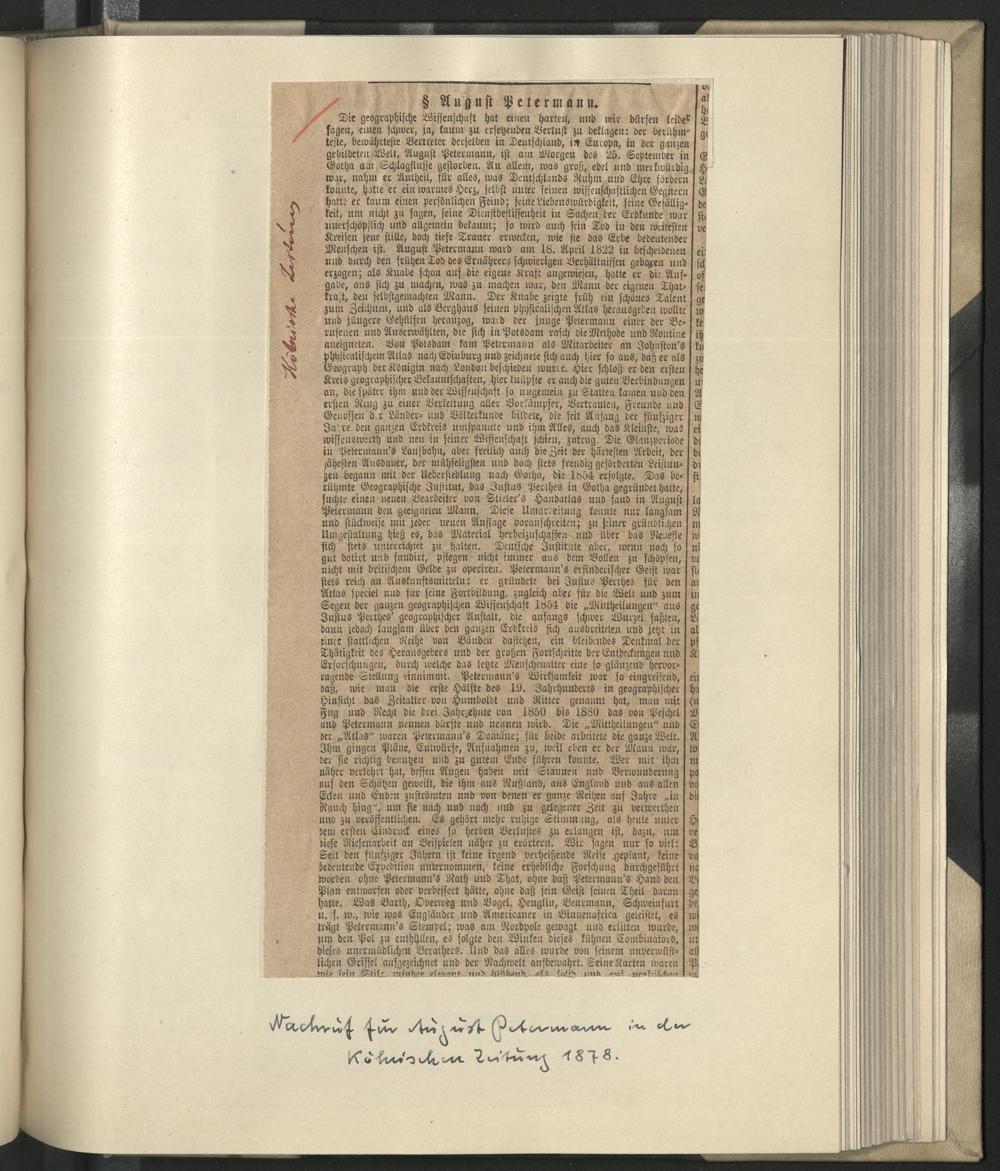 § August Petermann.
Die geographische Wissenschaft hat einen harten, und wir dürfen leider
sagen, einen schwer, ja, kaum zu ersetzenden Verlust zu beklagen: der berühm-
teste, bewährteste Vertreter derselben in Deutschland, in Europa, in der ganzen
gebildeten Welt, August Petermann, ist am Morgen des 25. September in
Gotha am Schlagflusse gestorben. An allem, was groß, edel und merkwürdig
war, nahm er Antheil, für alles, was Deutschlands Ruhm und Ehre fördern
konnte, hatte er ein warmes Herz, selbst unter seinen wissenschaftlichen Gegnern
hatte er kaum einen persönlichen Feind; seine Liebenswürdigkeit, seine Gefällig-
keit, um nicht zu sagen, seine Dienstbeflissenheit in Sachen der Erdkunde war
unerschöpflich und allgemein bekannt; so wird auch sein Tod in den weitesten
Kreisen jene stille, doch tiefe Trauer erwecken, wie sie das Erbe bedeutender
Menschen ist. August Petermann ward am 18. April 1822 in bescheidenen
und durch den frühen Tod des Ernährers schwierigen Verhältnissen geboren und
erzogen; als Knabe schon auf die eigene Kraft angewiesen, hatte er die Auf-
gabe, aus sich zu machen, was zu machen war, den Mann der eigenen That-
kraft, den selbstgemachten Mann. Der Knabe zeigte früh ein schönes Talent
zum Zeichnen, und als Berghaus seinen physicalischen Atlas herausgeben wollte
und jüngere Gehülfen heranzog, ward der junge Petermann einer der Be-
rufenen und Auserwählten, die sich in Potsdam rasch die Methode und Routine
aneigneten. Von Potsdam kam Petermann als Mitarbeiter an Johnston's
physicalischem Atlas nach Edinburg und zeichnete sich auch hier so aus, daß er als
Geograph der Königin nach London beschieden wurde. Hier schloß er den ersten
Kreis geographischer Bekanntschaften, hier knüpfte er auch die guten Verbindungen
an, die später ihm und der Wissenschaft so ungemein zu Statten kamen und den
ersten Ring zu einer Verkettung aller Vorkämpfer, Vertrauten, Freunde und
Genossen der Länder- und Völkerkunde bildete, die seit Anfang der fünfziger
Jahre den ganzen Erdkreis umspannte und ihm Alles, auch das Kleinste, was
wissenswerth und neu in seiner Wissenschaft schien, zutrug. Die Glanzperiode
in Petermann's Laufbahn, aber freilich auch die Zeit der härtesten Arbeit, der
zähesten Ausdauer, der mühseligsten und doch stets freudig geförderten Leistun-
gen begann mit der Uebersiedlung nach Gotha, die 1854 erfolgte. Das be-
rühmte Geographische Institut, das Justus Perthes in Gotha gegründet hatte,
suchte einen neuen Bearbeiter von Stieler's Handatlas und fand in August
Petermann den geeigneten Mann. Diese Umarbeitung konnte nur langsam
und stückweise mit jeder neuen Auflage voranschreiten; zu seiner gründlichen
Umgestaltung hieß es, das Material herbeizuschaffen und über das Neueste
sich stets unterrichtet zu halten. Deutsche Institute aber, wenn noch so
gut dotirt und fundirt, pflegen nicht immer aus dem Vollen zu schöpfen,
nicht mit britischem Gelde zu operiren. Petermann's erfinderischer Geist war
stets reich an Auskunftsmitteln: er gründete bei Justus Perthes für den
Atlas speciel und für seine Fortbildung, zugleich aber für die Welt und zum
Segen der ganzen geographischen Wissenschaft 1854 die „Mittheilungen“ aus
Justus Perthes' geographischer Anstalt, die anfangs schwer Wurzel faßten,
dann jedoch langsam über den ganzen Erdkreis sich ausbreiteten und jetzt in
einer stattlichen Reihe von Bänden dastehen, ein bleibendes Denkmal der
Thätigkeit des Herausgebers und der großen Fortschritte der Entdeckungen und
Erforschungen, durch welche das letzte Menschenalter eine so glänzend hervor-
ragende Stellung einnimmt. Petermann's Wirksamkeit war so eingreifend,
daß, wie man die erste Hälfte des 19. Jahrhunderts in geographischer
Hinsicht das Zeitalter von Humboldt und Ritter genannt hat, man mit
Fug und Recht die drei Jahrzehnte von 1850 bis 1880 das von Peschel
und Petermann nennen dürfte und nennen wird. Die „Mittheilungen“ und
der „Atlas“ waren Petermann's Domäne; für beide arbeitete die ganze Welt.
Ihm gingen Pläne, Entwürfe, Aufnahmen zu, weil eben er der Mann war,
der sie richtig benutzen und zu gutem Ende führen konnte. Wer mit ihm
näher verkehrt hat, dessen Augen haben mit Staunen und Verwunderung
auf den Schätzen geweilt, die ihm aus Rußland, aus England und aus allen
Ecken und Enden zuströmten und von denen er ganze Reihen auf Jahre „in
Rauch hing“, um sie nach und nach und zu gelegener Zeit zu verwerthen
und zu veröffentlichen. Es gehört mehr ruhige Stimmung, als heute unter
dem ersten Eindruck eines so herben Verlustes zu erlangen ist, dazu, um
diese Riesenarbeit an Beispielen näher zu erörtern. Wir sagen nur so viel:
Seit den fünfziger Jahren ist keine irgend verheißende Reise geplant, keine
bedeutende Expedition unternommen, keine erhebliche Forschung durchgeführt
worden ohne Petermann's Rath und That, ohne daß Petermann's Hand den
Plan entworfen oder verbessert hätte, ohne daß sein Geist seinen Theil daran
hatte. Was Barth, Overweg und Vogel, Heuglin, Beurmann, Schweinfurt
u. s. w., wie was Engländer und Americaner in Binnenafrica geleistet, es
trägt Petermann's Stempel; was am Nordpole gewagt und erlitten wurde,
um den Pol zu enthüllen, es folgte den Winken dieses kühnen Combinators,
dieses unermüdlichen Berathers. Und das alles wurde von seinem unverwüst-
lichen Griffel aufgezeichnet und der Nachwelt aufbewahrt. Seine Karten waren
wie sein Stil: minder elegant und blühend, als solid und auf praktischen
Kölnische Zeitung
Nachruf für August Petermann in der
Kölnischen Zeitung 1878.